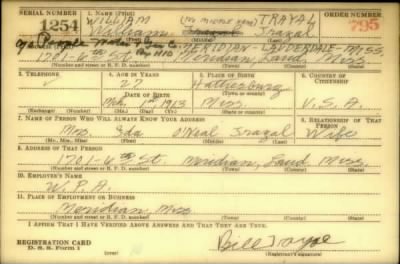 SERIAL NUMBER 1. NAME (Print) ORDER NUMBER
1254 WILLIAM (No MIDDLE NAME) TRAYAL 795
William
MERIDIAN - LAUDERDALE - MISS
1701-6th St. Meridian, Laud Miss
(Number and street or R. F. D. number) (Town) (County) (State)
3. TELEPHONE 4. AGE IN YEARS 5. PLACE OF BIRTH 6. COUNTRY OF CITIZENSHIP
27 Hattiesburg
DATE OF BIRTH (Town or county)
Mch. 1 1913 Miss. U.S.A.
(Exchange) (Number) (Mo.) (Day) (Yr.) (State or country)
7. NAME OF PERSON WHO WILL ALWAYS KNOW YOUR ADDRESS 8. RELATIONSHIP OF THAT PERSON
Mrs. Ida O'Neal Wife
(Mr., Mrs., Miss) (First) (Middle) (Last)
9. ADDRESS OF THAT PERSON
1701-6th St. Meridian, Laud Miss.
(Number and street or R. F. D. number) (Town) (County) (State)
10. EMPLOYER'S NAME
W.P.A.
11. PLACE OF EMPLOYMENT OR BUSINESS
Meridian Miss
(Number and street or R. F. D. number) (Town) (County) (State)
I AFFIRM THAT I HAVE VERIFIED ABOVE ANSWERS AND THAT THEY ARE TRUE.
REGISTRATION CARD
D. S. S. Form 1 Bill
(Registrant's signature)